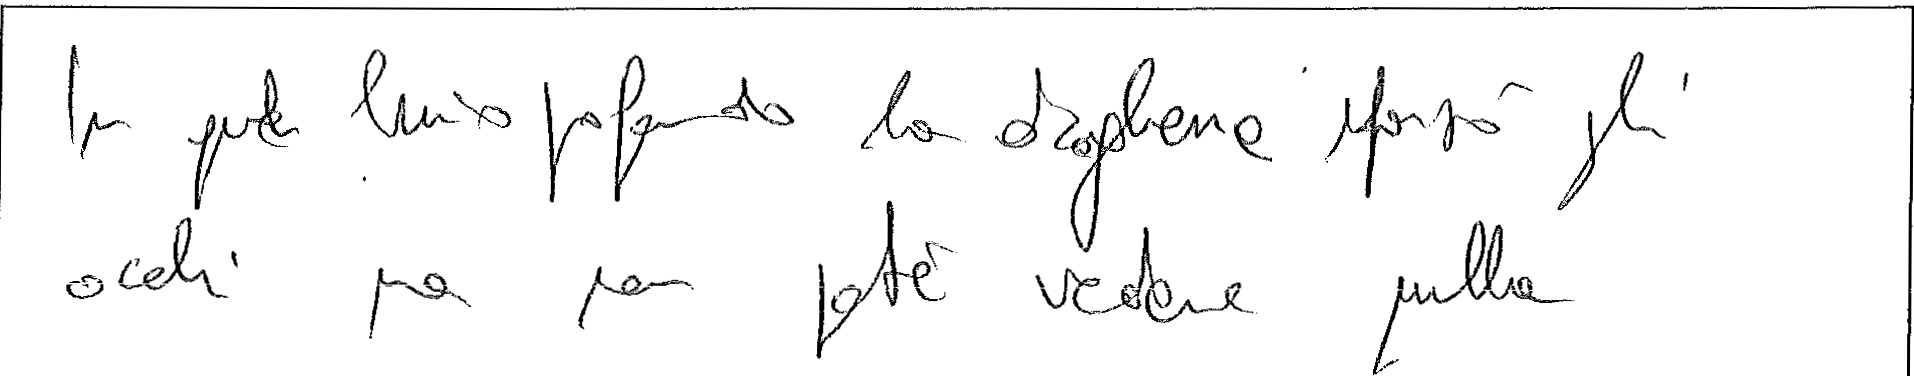 In quel buio profondo la drogheria sforzò gli
occhi ma non poté vedere nulla